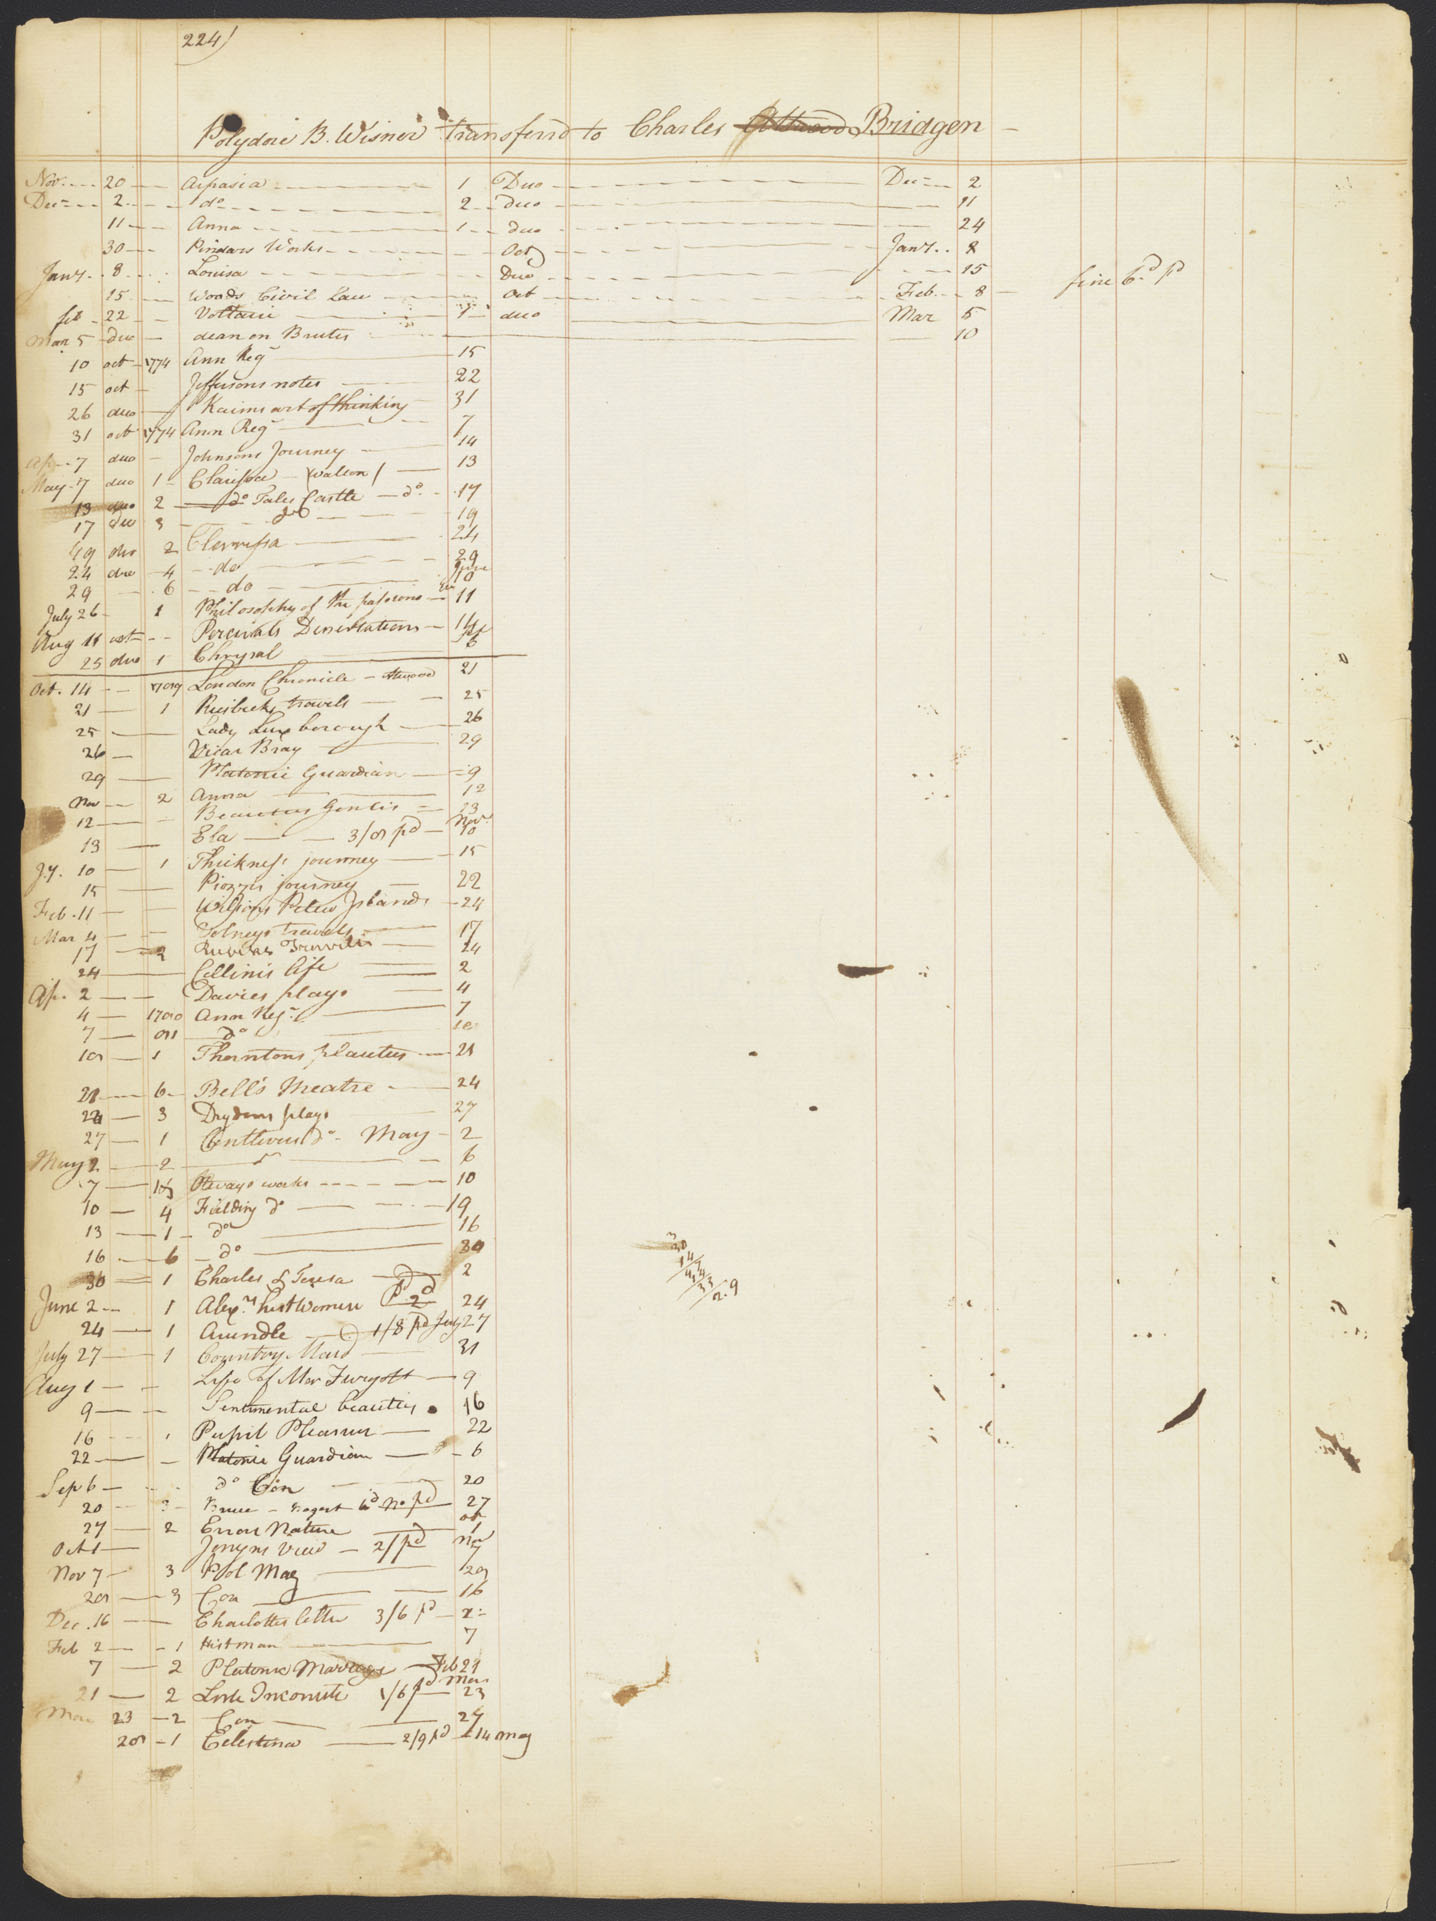 224)
Polydore B. Wisner transferd to Charles Attwood Bridgen
Nov. 20 Aspasia 1 Duo Dec 2
Dec 2 do 2 duo 11
11 Anna 1 duo 24
30 Pindars Works Oct Jany. 8
Jany. 8 Louisa Duo 15 fine 6d pd
15 Woods Civil Law Oct Feb 8
feb 22 Voltaire 1 duo Mar 5
Mar 5 Duo dean on Brutes 10
10 oct 1774 Ann Reg 15
15 oct Jeffersons notes 22
26 duo Kaims art of thinking 31
31 oct 1774 Ann Reg 7
Ap. 7 duo Johnsons Journey 14
May 7 duo 1 Clarissa (walton) 13
13 duo 2 do Tales Castle do 17
17 duo 3 do 19
19 duo 2 Clarrissa 24
24 duo 4 do 29
29 6 do June 10
July 26 1 Philosophy of the passions 11
Aug 11 oct Percivals Dissertations 14
25 duo 1 Chrysal 6
Oct. 14 London Chronicle Atwood 21
21 1 Riesbecks travels 25
25 Lady Luxborough 26
26 Vicar Bray 29
29 Platonic Guardian 9
Nov 2 Anna 12
12 Beauties Genlis 23
13 Ela 3/ pd Nov 10
Jy. 10 1 Thickness journey 15
15 Piozzis journey 22
Feb. 11 Wilsons Pelew Islands 24
Mar 4 travels 17
17 2 Travels 24
24 Cellinis life 2
Ap. 2 Davies plays 4
4 Ann Reg. 7
7 do
1 Thorntons plautus 21
21 6 Bell's theatre 24
24 3 Drydens plays 27
27 1 Centlivres do May 2
May 2 2 6
7 Otways works 10
10 4 Fielding do 19
13 1 do 16
16 6 do 30
30 1 Charles & Teresa 2
June 2 1 Alexrs hist Women Pd 2d 24
24 1 Arundle 1/8 pd July 27
July 27 1 Country Maid 31
Aug 1 Life of Mr Turgott 9
9 Sentimental beauties 16
16 Pupil Pleasure 22
22 Platonic Guardian 6
Sep 6 do Con 20
20 3 Bruce 6d No pd 27
27 2 Errors Nature 1
Oct 1 Jenyns View 2/ pd Nov 7
Nov 7 3 Pol Mag
3 Con 16
Dec. 16 Charlottes letter 3/6 pd 2
Feb 2 1 Hist man 7
7 2 Platonic Marriage Feb 21
21 2 Link Inconnite 1/6 pd Mar 23
Mar 23 2 Con
1 Celestina 2/9 pd 14 may